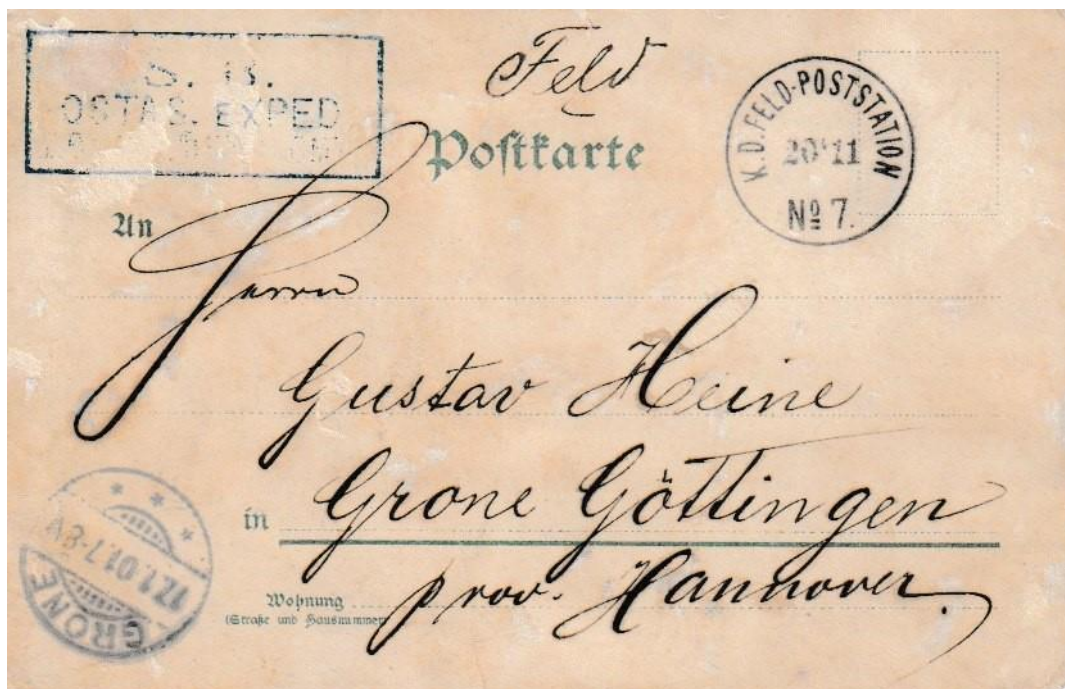 S. B.
OSTAS. EXPED
Feld
Postkarte
K. D. FELD-POSTSTATION
20/11
№ 7.
An
Herrn
Gustav Heine
in Grone Göttingen
prov. Hannover.
Wohnung
(Straße und Hausnummer)
GRONE
17.1.01.7-8V